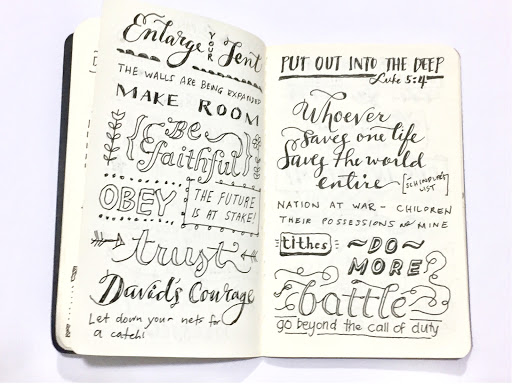 Enlarge YOUR Tent
THE WALLS ARE BEING EXPANDED
MAKE ROOM
Be
faithful
OBEY
THE FUTURE
IS AT STAKE!
trust
David's Courage
Let down your nets for
a catch!
PUT OUT INTO THE DEEP
Luke 5:4
Whoever
saves one life
Saves the world
entire
[SCHINDLER'S
LIST]
NATION AT WAR - CHILDREN
THEIR POSSESSIONS MINE
tithes
~DO~
MORE?
battle
go beyond the call of duty